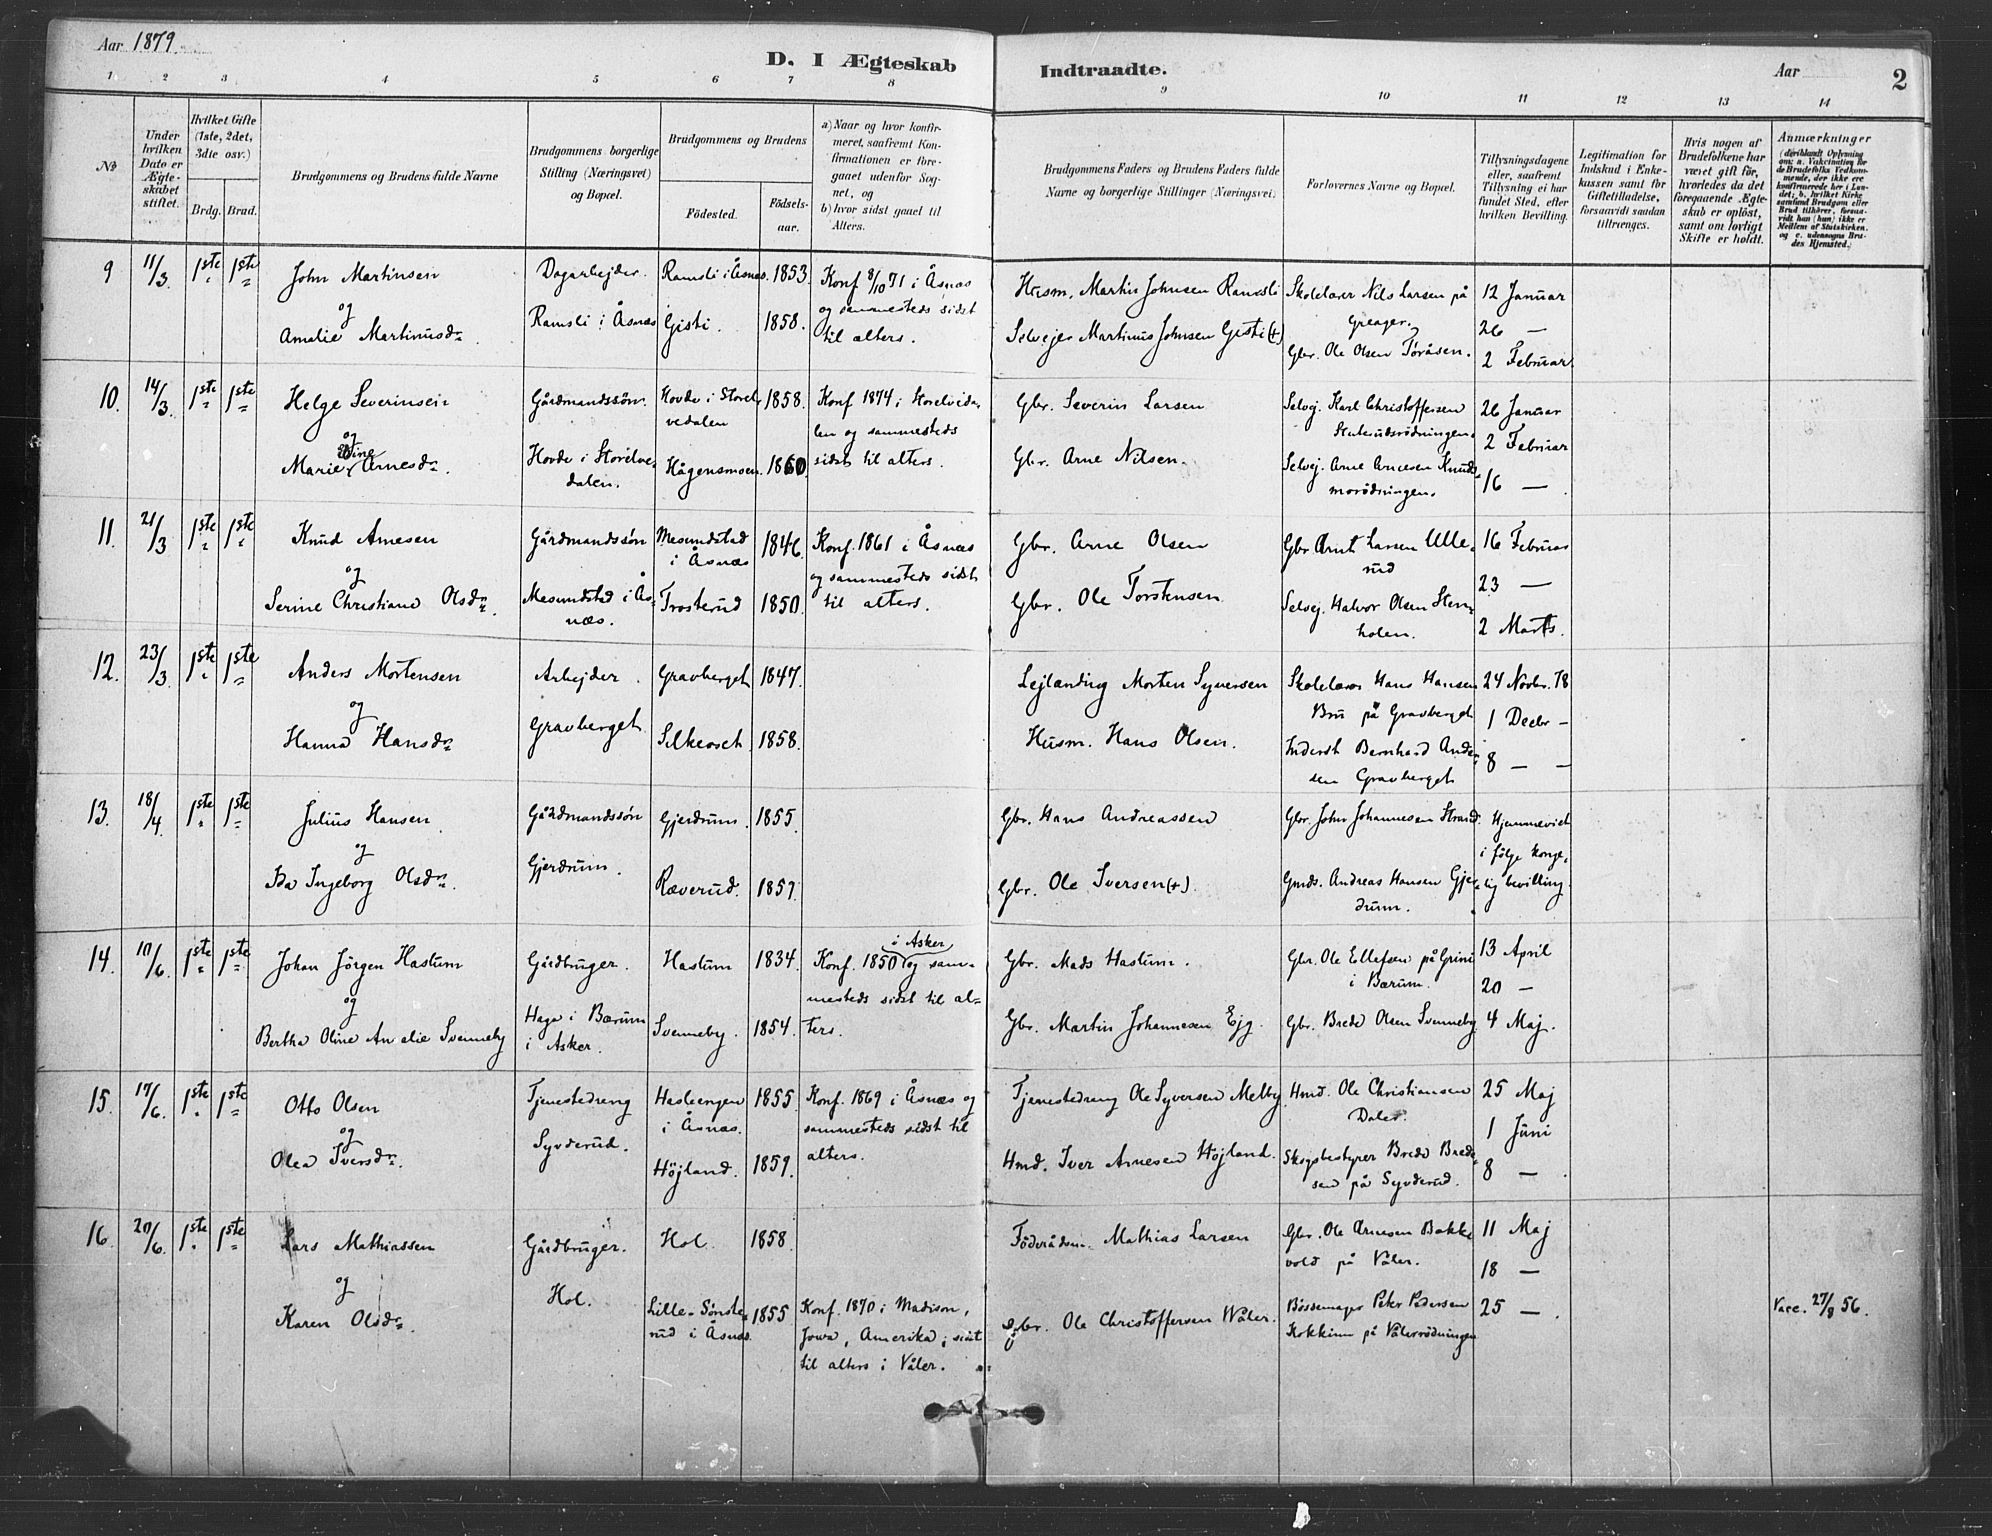 Aar 1879.
D. I Ægteskab Indtraadte.
Aar
2
1 2 3 4 5 6 7 8 9 10 11 12 13 14
No
Under hvilken Dato er Ægteskabet stiftet.
Hvilket Gifte (1ste, 2det, 3die osv.)
Brdg. Brud.
Brudgommens og Brudens fulde Navne
Brudgommens borgerlige Stilling (Næringsvei) og Bopæl.
Brudgommens og Brudens
Fødested.
Fødselsaar.
a) Naar og hvor konfirmeret, saafremt Konfirmationen er foregaaet udenfor Sognet, og
b) hvor sidst gaaet til Alters.
Brudgommens Faders og Brudens Faders fulde Navne og borgerlige Stillinger (Næringsvei).
Forlovernes Navne og Bopæl.
Tillysningsdagene eller, saafremt Tillysning ei har fundet Sted, efter hvilken Bevilling.
Legitimation for Indskud i Enkekassen samt for Giftetilladelse, forsaavidt saadan tiltrænges.
Hvis nogen af Brudefolkene har været gift før, hvorledes da det foregaaende Ægteskab er opløst, samt om lovligt Skifte er holdt.
Anmærkninger
(deriblandt Oplysning om: a. Vakcination for de Brudefolks Vedkommende, der ikke ere konfirmerede her i Landet; b. hvilket Kirkesamfund Brudgom eller Brud tilhører, forsaavidt han (hun) ikke er Medlem af Statskirken, og c. udensogns Brudes Hjemsted.)
9 11/3. 1ste 1ste John Martinsen Dagarbejder. Ramsli i Åsnæs. 1853. Konf 8/10 71 i Åsnæs Husm. Martin Johnsen Ramsli Skolelærer Nils Larsen på 12 Januar
og Ramsli i Åsnæs Gisti. 1858. og sammesteds sidst Selvejer Martinus Johnsen Gisti (+) Greager. 26 —
Amalie Martinusdr. til alters. Gbr. Ole Olsen Toråsen. 2 Februar
10. 14/3. 1ste 1ste Helge Severinsen Gårdmandssøn. Hovde i Storel- 1858. Konf 1874 i Storelvda- Gbr. Severin Larsen Selvej. Karl Christoffersen 26 Januar
vedalen len og sammesteds 2 Februar
og Hovde i Storelve- Hågensmoen. 1860. sidst til alters. Gbr. Arne Nilsen. Selvej. Arne Arnesen Knuds-
Marie Arnesdr. dalen. morödningen. 16 —
11. 21/3 1ste 1ste Knud Arnesen Gårdmandssøn Mesundstad 1846. Konf. 1861 i Åsnæs Gbr. Arne Olsen Gbr Arnt Larsen Ulle- 16 Februar
i Åsnæs og sammesteds sidst rud 23 —
og Mesundstad i Ås- Trosterud 1850. til alters. Gbr. Ole Torstensen Selvej. Halvor Olsen Sten-
Serine Christiane Olsdr. næs. holen. 2 Marts.
12. 23/3. 1ste 1ste Anders Mortensen Arbejder. Gravberget 1847. Lejlænding Morten Syversen Skolelærer Hans Hansen 24 Novbr. 78
Bru på Gravberget 1 Decbr —
og Gravberget Silkeoset 1858. Husm. Hans Olsen. Inderst Bernhard Ander-
Hanna Hansdr. sen Gravberget 8 — —
13. 18/4. 1ste 1ste Julius Hansen Gårdmandssøn Gjerdrum. 1855. Gbr. Hans Andreassen Gbr. John Johannesen Strand. Hjemmeviet
og Gjerdrum. i følge konge-
Ida Ingeborg Olsdr. Ræverud. 1857. Gbr. Ole Iversen (+). Gmds. Andreas Hansen Gjer- lig bevilling.
drum.
14. 10/6. 1ste 1ste Johan Jörgen Hastum Gårdbruger. Hastum 1834. Konf. 1850 i Asker og sam- Gbr. Mads Hastum. Gbr. Ole Ellefsen på Grini 13 April
mesteds sidst til al- i Bærum. 20 —
og Hage i Bærum Svenneby. 1854. ters. Gbr. Martin Johannesen Ejg. Gbr. Brede Olsen Svenneby 4 Maj.
Bertha Oline Amalie Svenneby i Asker.
15. 17/6. 1ste 1ste Otto Olsen Tjenestedreng Hasleengen 1855. Konf. 1869 i Åsnæs og Tjenestedreng Ole Syversen Melby. Hmd. Ole Christiansen 25 Maj
i Åsnæs. sammesteds sidst til Daler. 1 Juni
og Syvderud. Höjland. 1859. alters. Hmd. Iver Arnesen Höjland. Skogsbestyrer Brede Brede-
Olea Iversdr. sen på Syvderud. 8 —
16. 20/6. 1ste 1ste Lars Mathiassen Gårdbruger. Hol. 1858. Föderådsm. Mathias Larsen Gbr. Ole Arnesen Bakke- 11 Maj
vold på Våler. 18 —
og Hol. Lille-Sönste- 1855 Konf. 1870 i Madison, Gbr. Ole Christoffersen Våler. Bössemager Peter Pedersen 25 — Vacc. 27/8 56.
Karen Olsdr. rud i Åsnæs. Jowa, Amerika; sidst Kokkinn på Vålerrödningen
til alters i Våler.